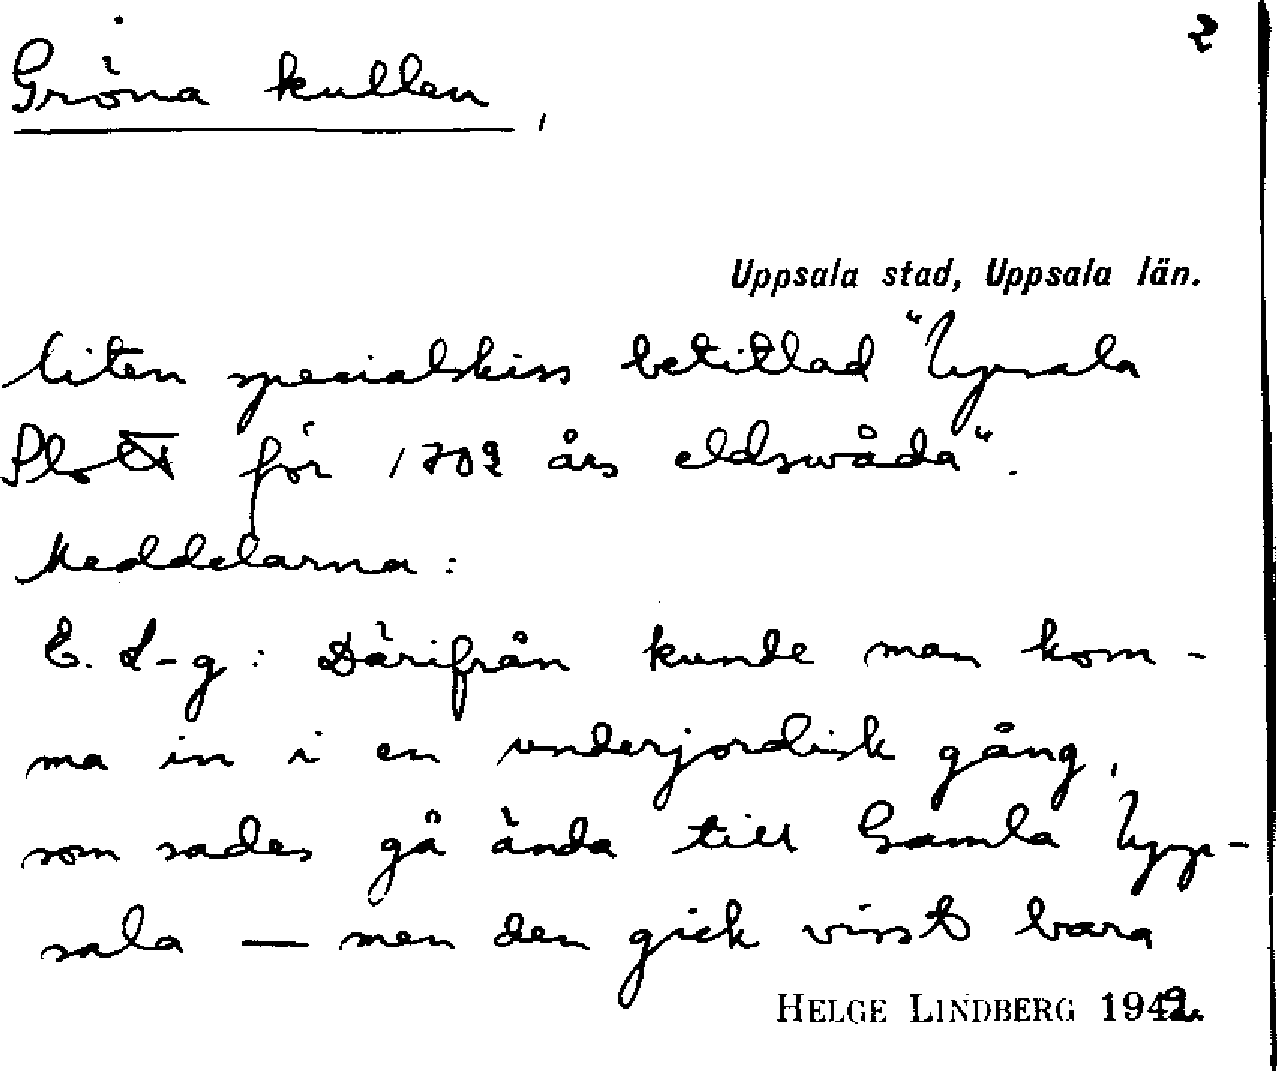 2
Gröna kullen,
Uppsala stad, Uppsala län.
liten specialskiss betitlad "Upsala
Slott för 1702 års eldswåda".
Meddelarna:
E. L-g: Därifrån kunde man kom-
ma in i en underjordisk gång,
som sades gå ända till Gamla Upp-
sala — men den gick visst bara
HELGE LINDBERG 1942.